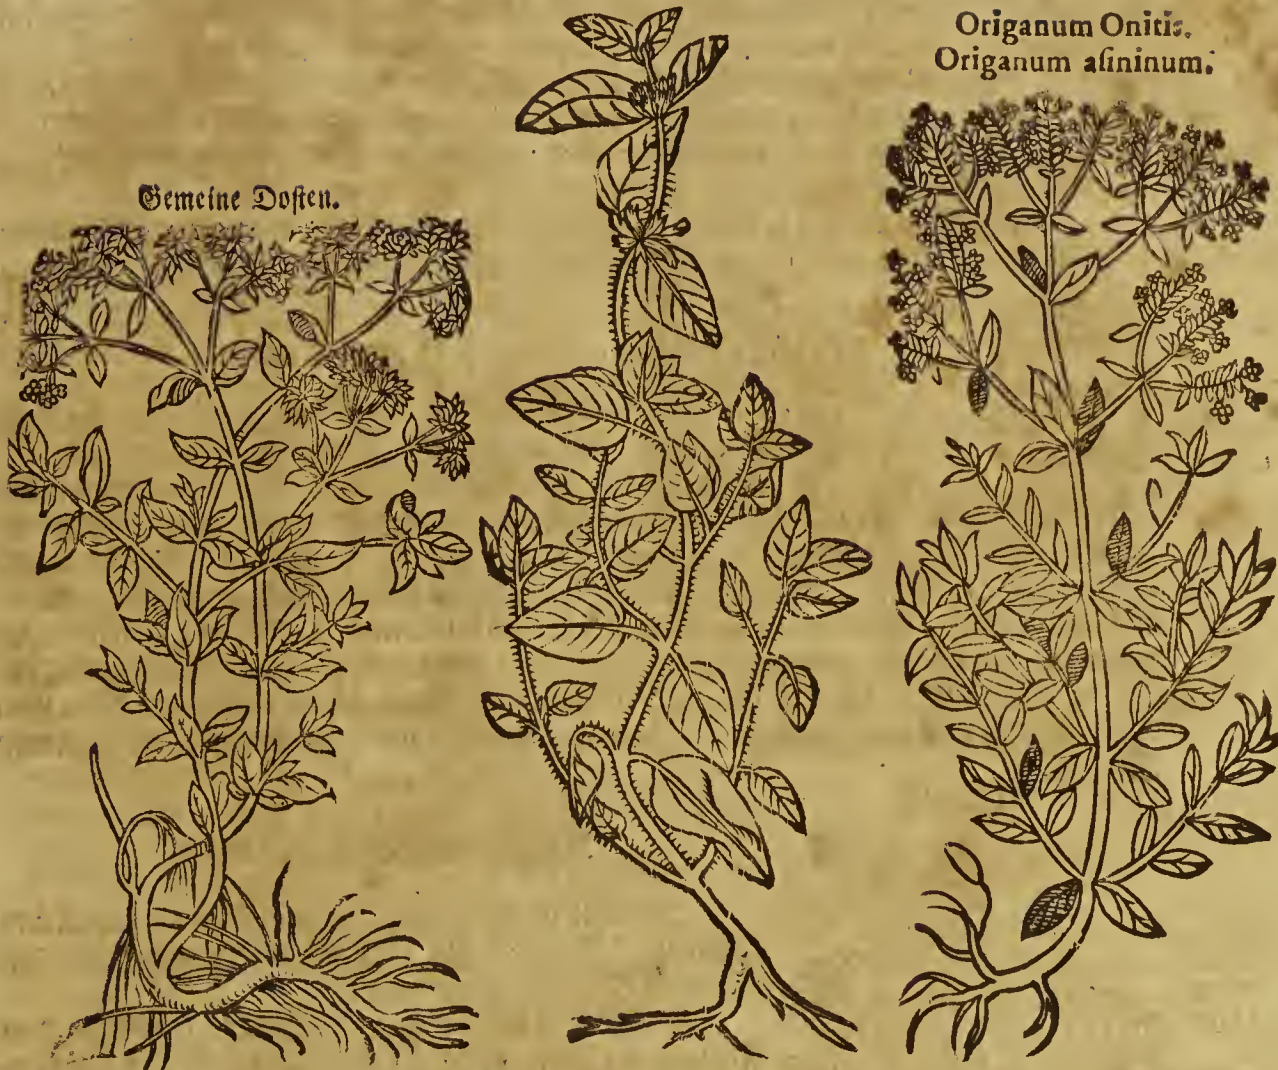 Gemeine Dosten.
Origanum Onitis.
Origanum aſininum.